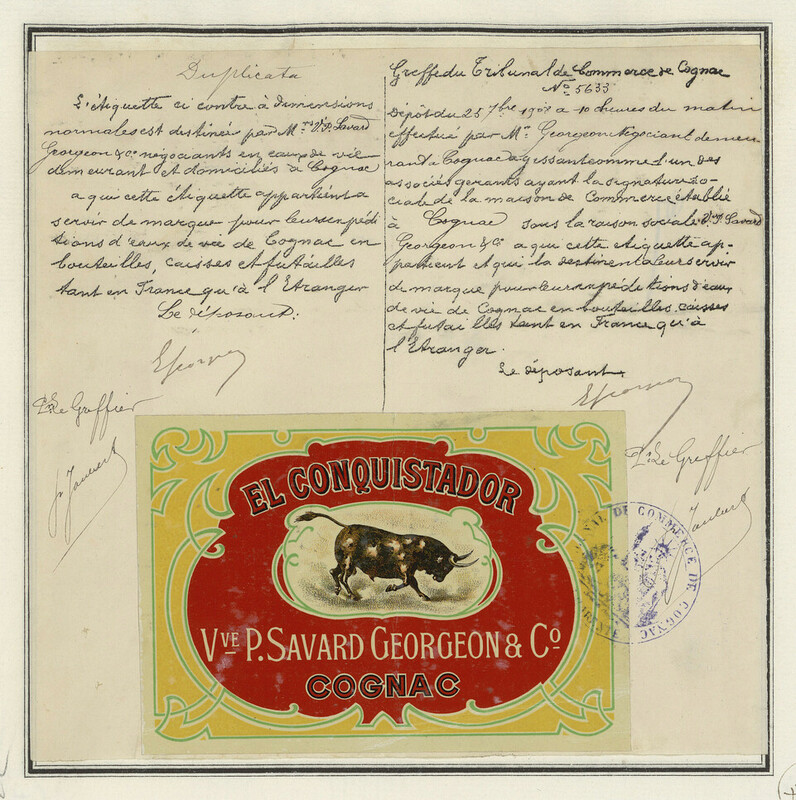 Duplicata
L'étiquette ci contre à dimensions
normales est destinée par Mrs Vve P. Savard
Georgeon & Co négociants en eaux de vie
demeurant et domiciliés à Cognac
a qui cette étiquette appartient a
servir de marque pour leurs expédi
tions d'eaux de vie de Cognac en
bouteilles, caisses et futailles
tant en France qu'à l'Etranger
Le déposant:
EGeorgeon
Pr Le Greffier
Greffe du Tribunal de Commerce de Cognac
No 5633
Dépôt du 25 7bre à 10 heures du matin
effectué par Mr Georgeon Négociant demeu
rant à Cognac agissant comme l'un des
associés gérants ayant la signature so-
ciale de la maison de Commerce établie
à Cognac sous la raison sociale Vve P. Savard
Georgeon & Co a qui cette étiquette ap-
partient et qui la destinent a leur servir
de marque pour leurs expéditions d'eaux
de vie de Cognac en bouteilles, caisses
et futailles tant en France qu'à
l'Etranger.
Le déposant
EGeorgeon
Pr Le Greffier
EL CONQUISTADOR
VVE P. SAVARD GEORGEON & CO
COGNAC
DE COMMERCE DE COGNAC